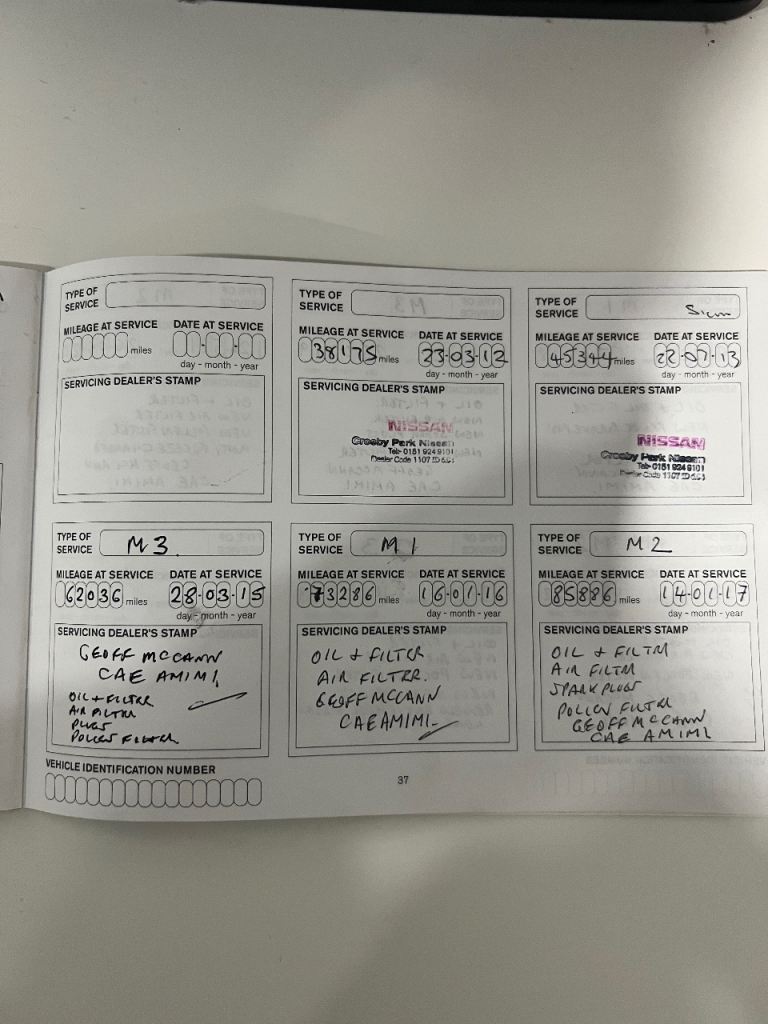 TYPE OF
SERVICE
MILEAGE AT SERVICE DATE AT SERVICE
miles
day - month - year
SERVICING DEALER'S STAMP
TYPE OF
SERVICE
MILEAGE AT SERVICE DATE AT SERVICE
38175 miles 23-03-12
day - month - year
SERVICING DEALER'S STAMP
NISSAN
Crosby Park Nissan
Tel: 0151 924 9101
Dealer Code 1107
TYPE OF
SERVICE
MILEAGE AT SERVICE DATE AT SERVICE
45344 miles 22-07-13
day - month - year
SERVICING DEALER'S STAMP
NISSAN
Crosby Park Nissan
Tel: 0151 924 9101
Dealer Code 1107
TYPE OF
SERVICE M3.
MILEAGE AT SERVICE DATE AT SERVICE
62036 miles 28-03-15
day - month - year
SERVICING DEALER'S STAMP
GEOFF MCCANN
CAE AMIMI
OIL + FILTER
AIR FILTER
PLUGS
POLLEN FILTER
TYPE OF
SERVICE M1
MILEAGE AT SERVICE DATE AT SERVICE
73286 miles 16-01-16
day - month - year
SERVICING DEALER'S STAMP
OIL & FILTER
AIR FILTER.
GEOFF MCCANN
CAE AMIMI
TYPE OF
SERVICE M2
MILEAGE AT SERVICE DATE AT SERVICE
85886 miles 14-01-17
day - month - year
SERVICING DEALER'S STAMP
OIL & FILTER
AIR FILTER
SPARK PLUGS
POLLEN FILTER
GEOFF MCCANN
CAE AMIMI
VEHICLE IDENTIFICATION NUMBER
37